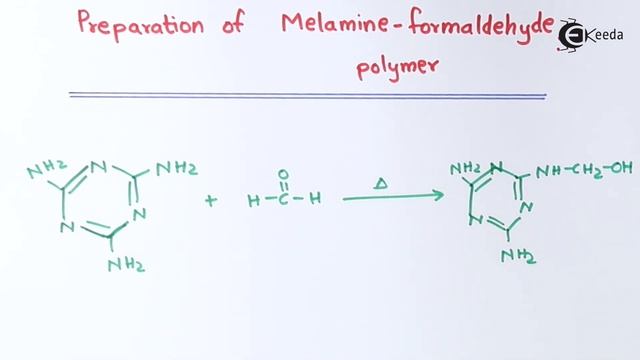 Preparation of Melamine-formaldehyde
polymer
Keeda
NH2 N NH2
N N
NH2
+
O
H-C-H
Δ
NH2 N NH-CH2-OH
N N
NH2